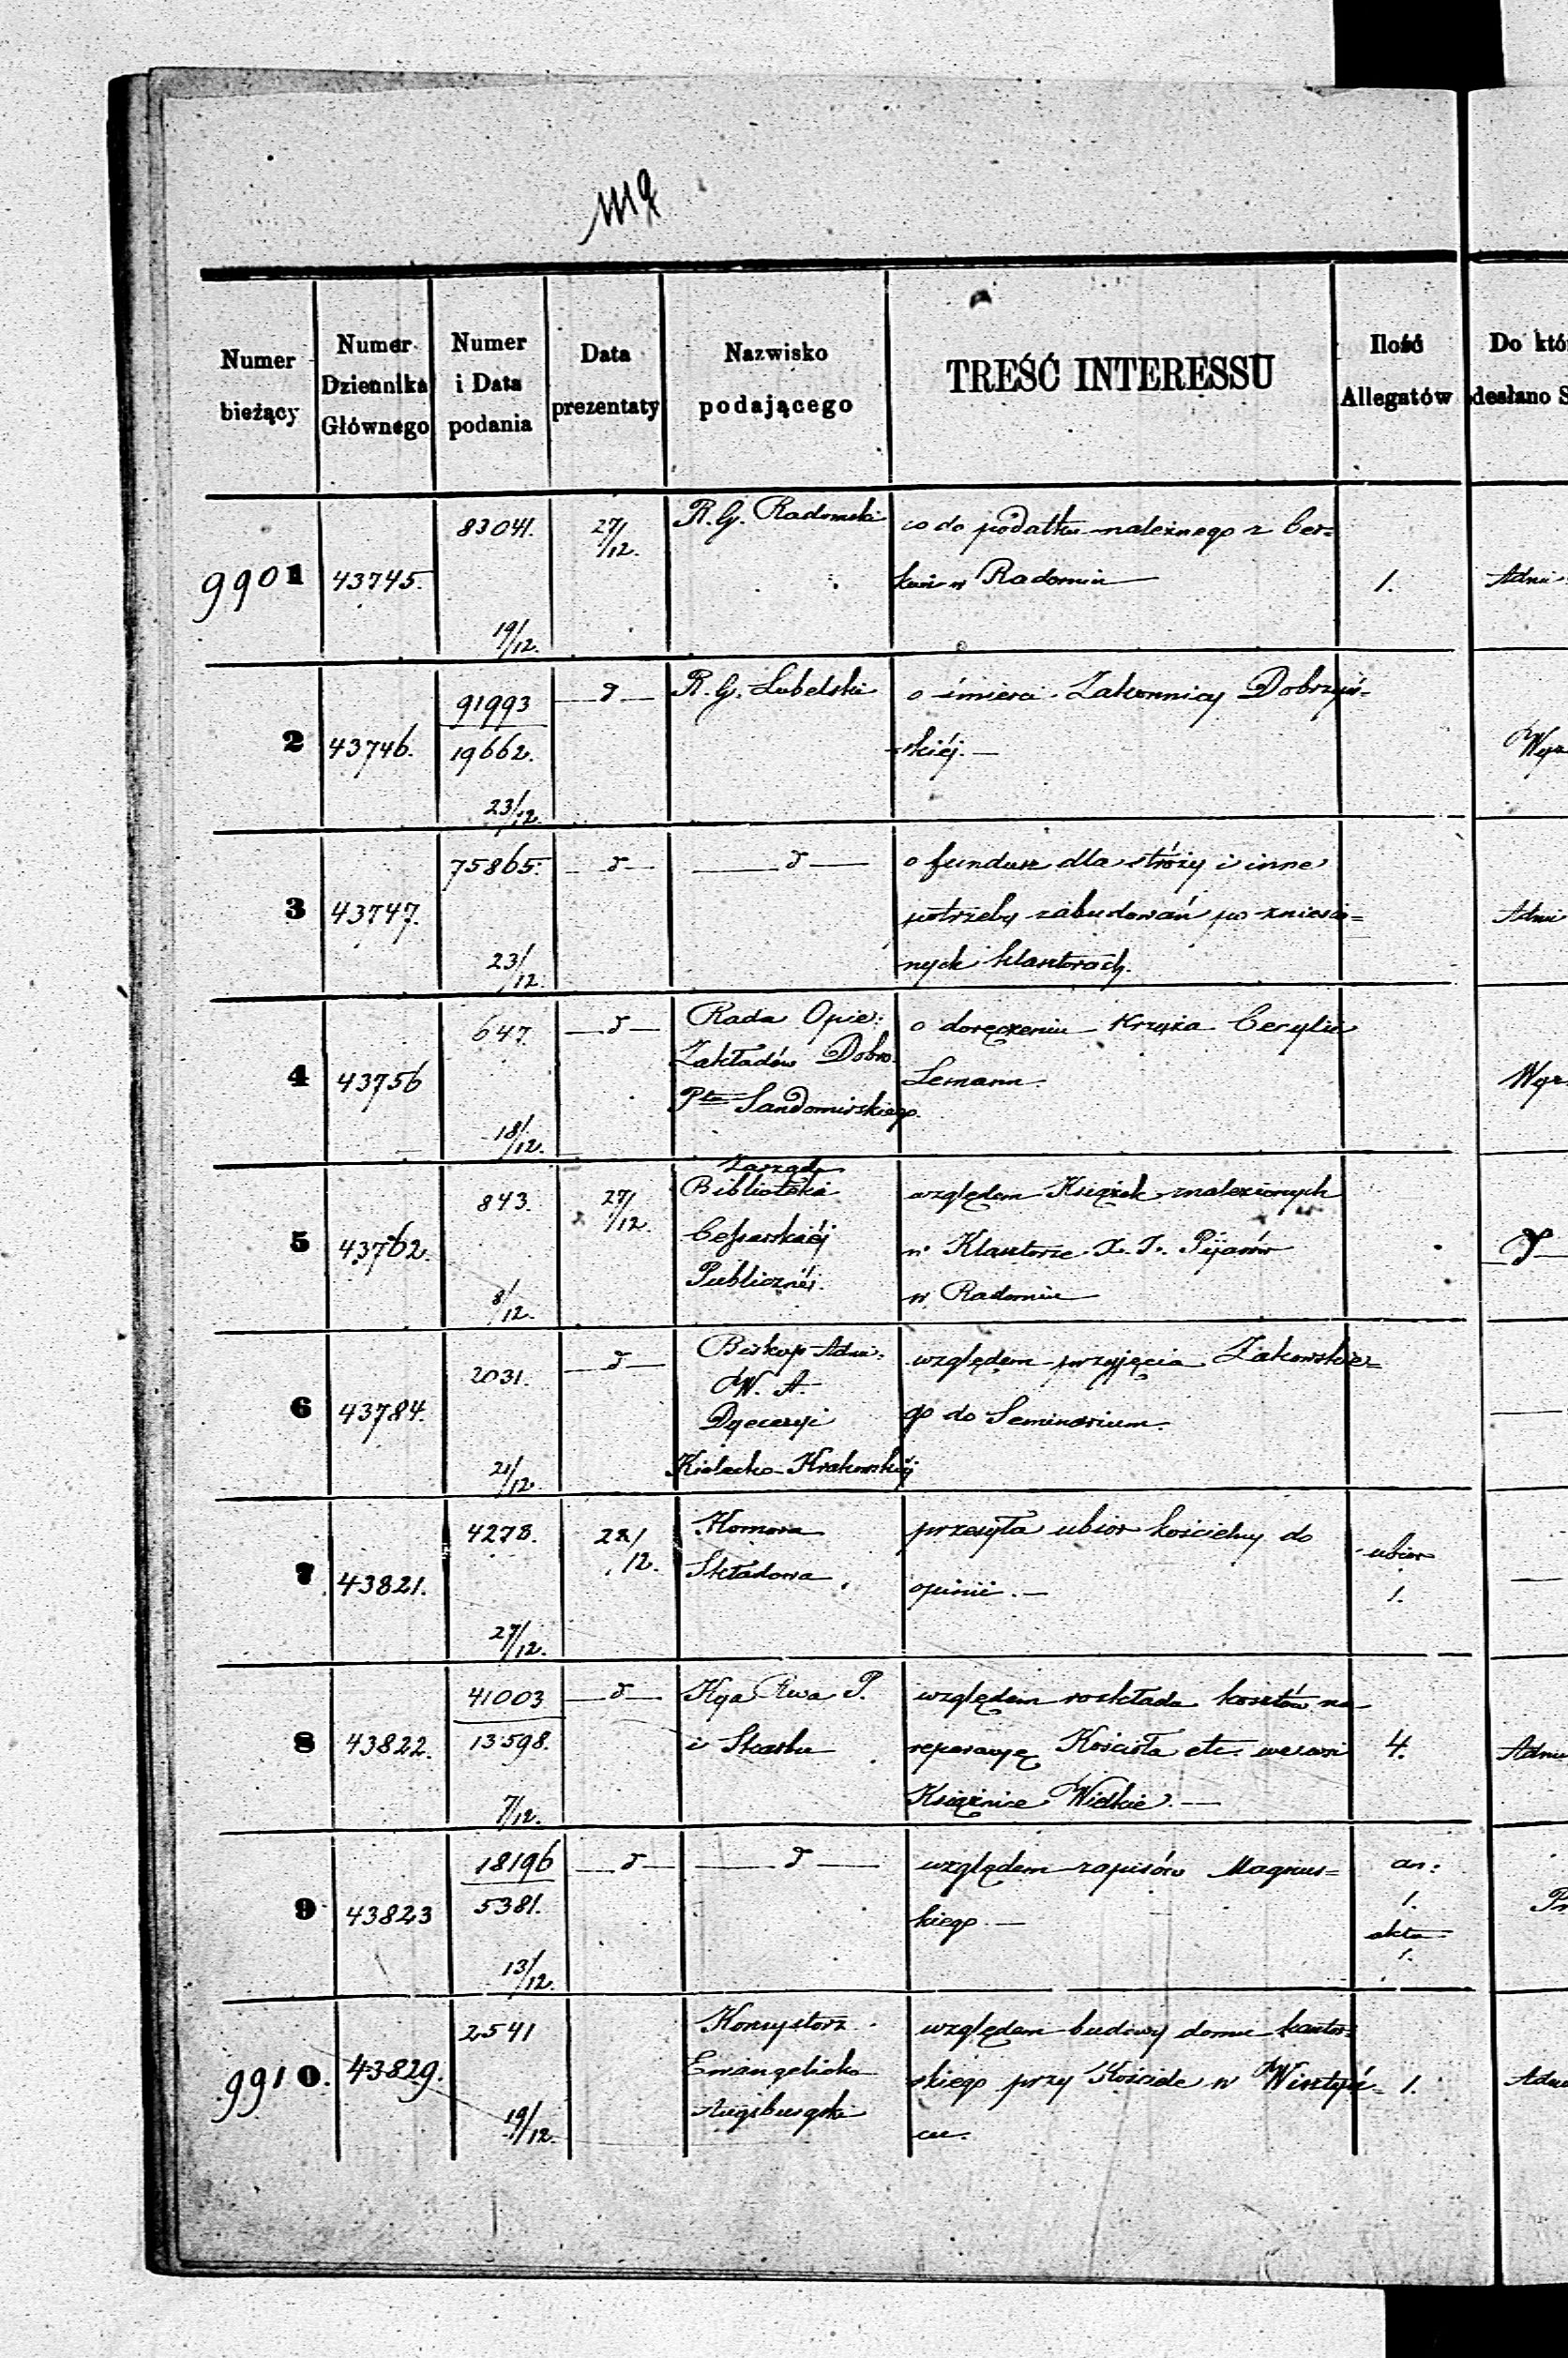 Numer bieżący | Numer Dziennika Głównego | Numer i Data podania | Data prezentaty | Nazwisko podającego | TREŚĆ INTERESSU | Ilość Allegatów | Do któ
desłano S
9901 | 43745. | 83041. 19/12. | 27/12. | R. G. Radomski | co do podatku należnego z Cer=
kwi w Radomiu | 1. | Adm
2 | 43746. | 91993 19662. 23/12 | d | R. G. Lubelski | o śmierci Zakonnicy Dobrzyń=
skiéj. — | Wyz
3 | 43747. | 75865. 23/12. | d | d | o fundusz dla stróży i inne
potrzeby zabudowań po zniesio=
nych klasztorach. | Adm
4 | 43756 | 647. 18/12. | d | Rada Opie:
Zakładów Dobro.
Ptu Sandomirskiego. | o doręczeniu Krzyża Cecylii
Lemann. | Wyz
5 | 43762. | 843. 8/12. | 27/12. | Zarząd
Biblioteki
Cesarskiéj
Publicznéj. | względem Książek znalezionych
w Klasztorze X. X. Pijarów
w Radomiu | d
6 | 43784. | 2031. 21/12. | d | Biskup Adm:
W. A.
Dyecezyi
Kielecko-Krakowskiéj | względem przyjęcia Zakowskie=
go do Seminarium.
7 | 43821. | 4278. 27/12. | 28/12. | Komora
Składowa | przesyła ubior kościelny do
opinii. — | ubior
1.
8 | 43822. | 41003 13598. 7/12. | d | Kya Rwa P.
i Skarbu | względem rozkładu kosztów na
reparacyę Kościoła etc. we wsi
Książnice Wielkie. — | 4. | Adm
9 | 43823 | 18196 5381. 13/12. | d | d | względem zapisów Magnus=
kiego. — | an:
1.
akta
1. | Pr
9910. | 43829. | 2541 19/12. | Konsystorz
Ewangelicko
Augsburgski | względem budowy domu kantor=
skiego przy Kościele w Wisztyń=
cu. | 1. | Adm